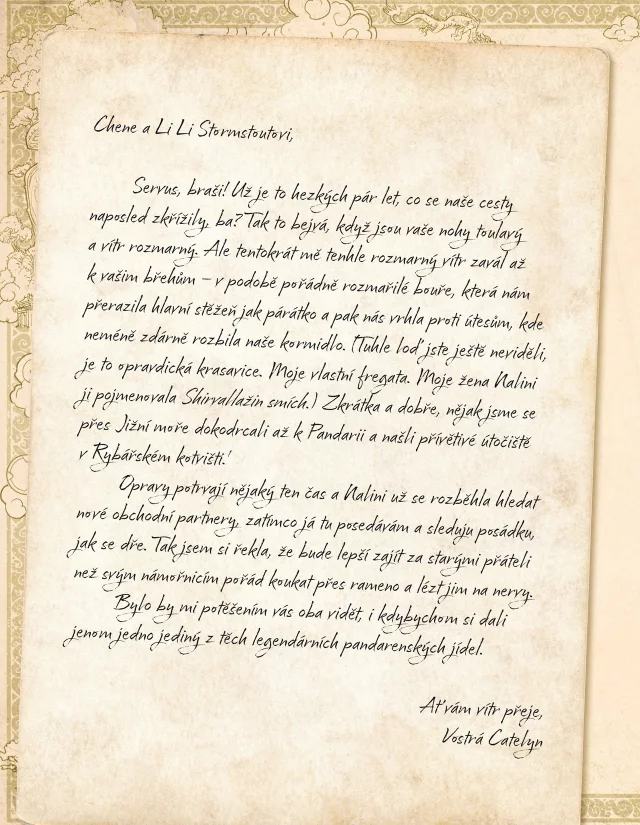 Chene a Li Li Stormstoutovi,
Servus, braši! Už je to hezkých pár let, co se naše cesty
naposled zkřížily, ba? Tak to bejvá, když jsou vaše nohy toulavý
a vítr rozmarný. Ale tentokrát mě tenhle rozmarný vítr zavál až
k vašim břehům – v podobě pořádně rozmařilé bouře, která nám
přerazila hlavní stěžeň jak párátko a pak nás vrhla proti útesům, kde
neméně zdárně rozbila naše kormidlo. (Tuhle loď jste ještě neviděli,
je to opravdická krasavice. Moje vlastní fregata. Moje žena Nalini
ji pojmenovala Shirvallažin smích.) Zkrátka a dobře, nějak jsme se
přes Jižní moře dokodrcali až k Pandarii a našli přívětivé útočiště
v Rybářském kotvišti.'
Opravy potrvají nějaký ten čas a Nalini už se rozběhla hledat
nové obchodní partnery, zatímco já tu posedávám a sleduju posádku,
jak se dře. Tak jsem si řekla, že bude lepší zajít za starými přáteli
než svým námořnicím pořád koukat přes rameno a lézt jim na nervy.
Bylo by mi potěšením vás oba vidět, i kdybychom si dali
jenom jedno jediný z těch legendárních pandarenských jídel.
Ať vám vítr přeje,
Vostrá Catelyn